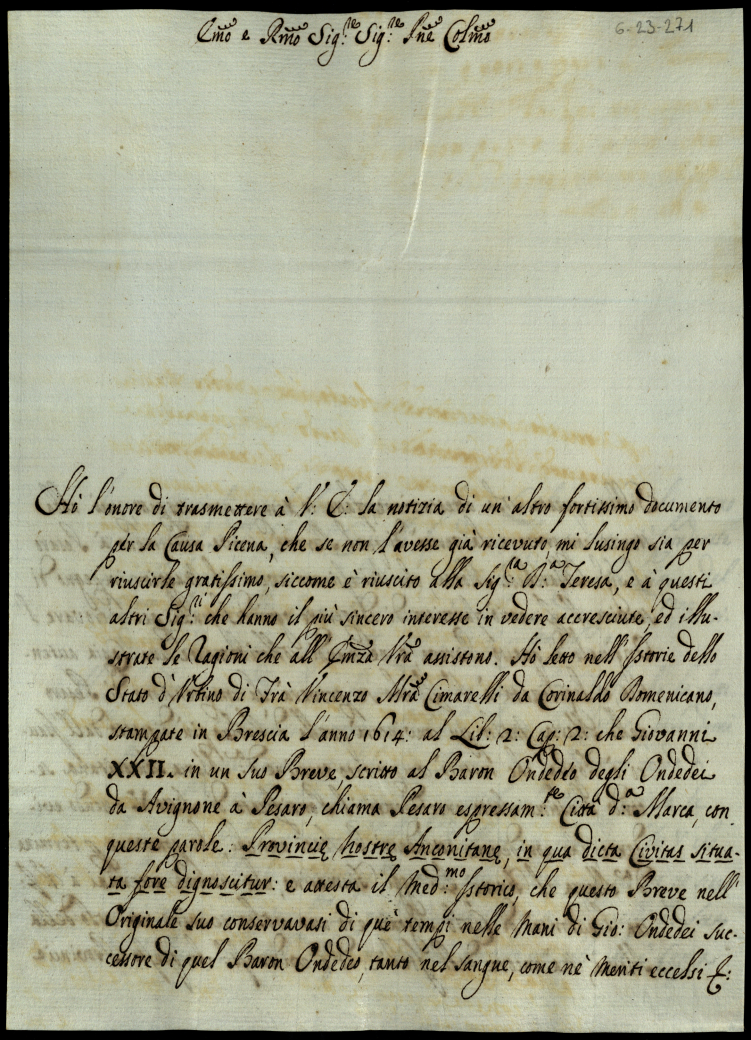 Emõ e Rmõ Sig:re Sig:re Pne Colmõ
6-23-271
Hò l'onore di trasmettere à V: E: la notizia di un'altro fortissimo documento
per la Causa Picena, che se non l'avesse già ricevuto, mi lusingo sia per
riuscirle gratissimo, siccome è riuscito alla Sig:ra D:a Teresa, e à questi
altri Sig:ri che hanno il più sincero interesse in vedere accresciute, ed illu-
strate le Ragioni che all'Emza Vrã assistono. Hò letto nell'Istorie dello
Stato d'Urbino di Frà Vincenzo Mrã Cimarelli da Corinaldo Domenicano,
stampate in Brescia l'anno 1614: al Lib: 2: Cap: 2: che Giovanni
XXII. in un suo Breve, scritto al Baron Ondedeo degli Ondedei
da Avignone à Pesaro, chiama Pesaro espressam:te Città d:a Marca, con
queste parole: Provincię Nostrę Anconitanę, in qua dicta Civitas situa-
ta fore dignoscitur: e attesta il Med:mo Istorico, che questo Breve nell'
Originale suo conservavasi di què tempi nelle mani di Gio: Ondedei suc-
cessore di quel Baron Ondedeo, tanto nel sangue, come nè meriti eccelsi E: